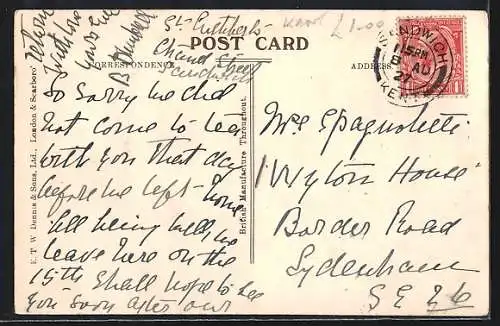 St Cuthberts
Chanel
Sandwich
POST CARD
CORRESPONDENCE
ADDRESS
So Sorry we did
not come to tea
with you that day
before we left - home
all being well, we
leave here on the
15th shall hope to see
you soon after our
return
with love
B
Mrs Spagnoletti
"Wyton House"
Border Road
Sydenham
S E 26
SANDWICH
1.15 PM
8 AU
27
KENT
£1-00
E. T. W. Dennis & Sons, Ltd., London & Scarboro'
British Manufacture Throughout